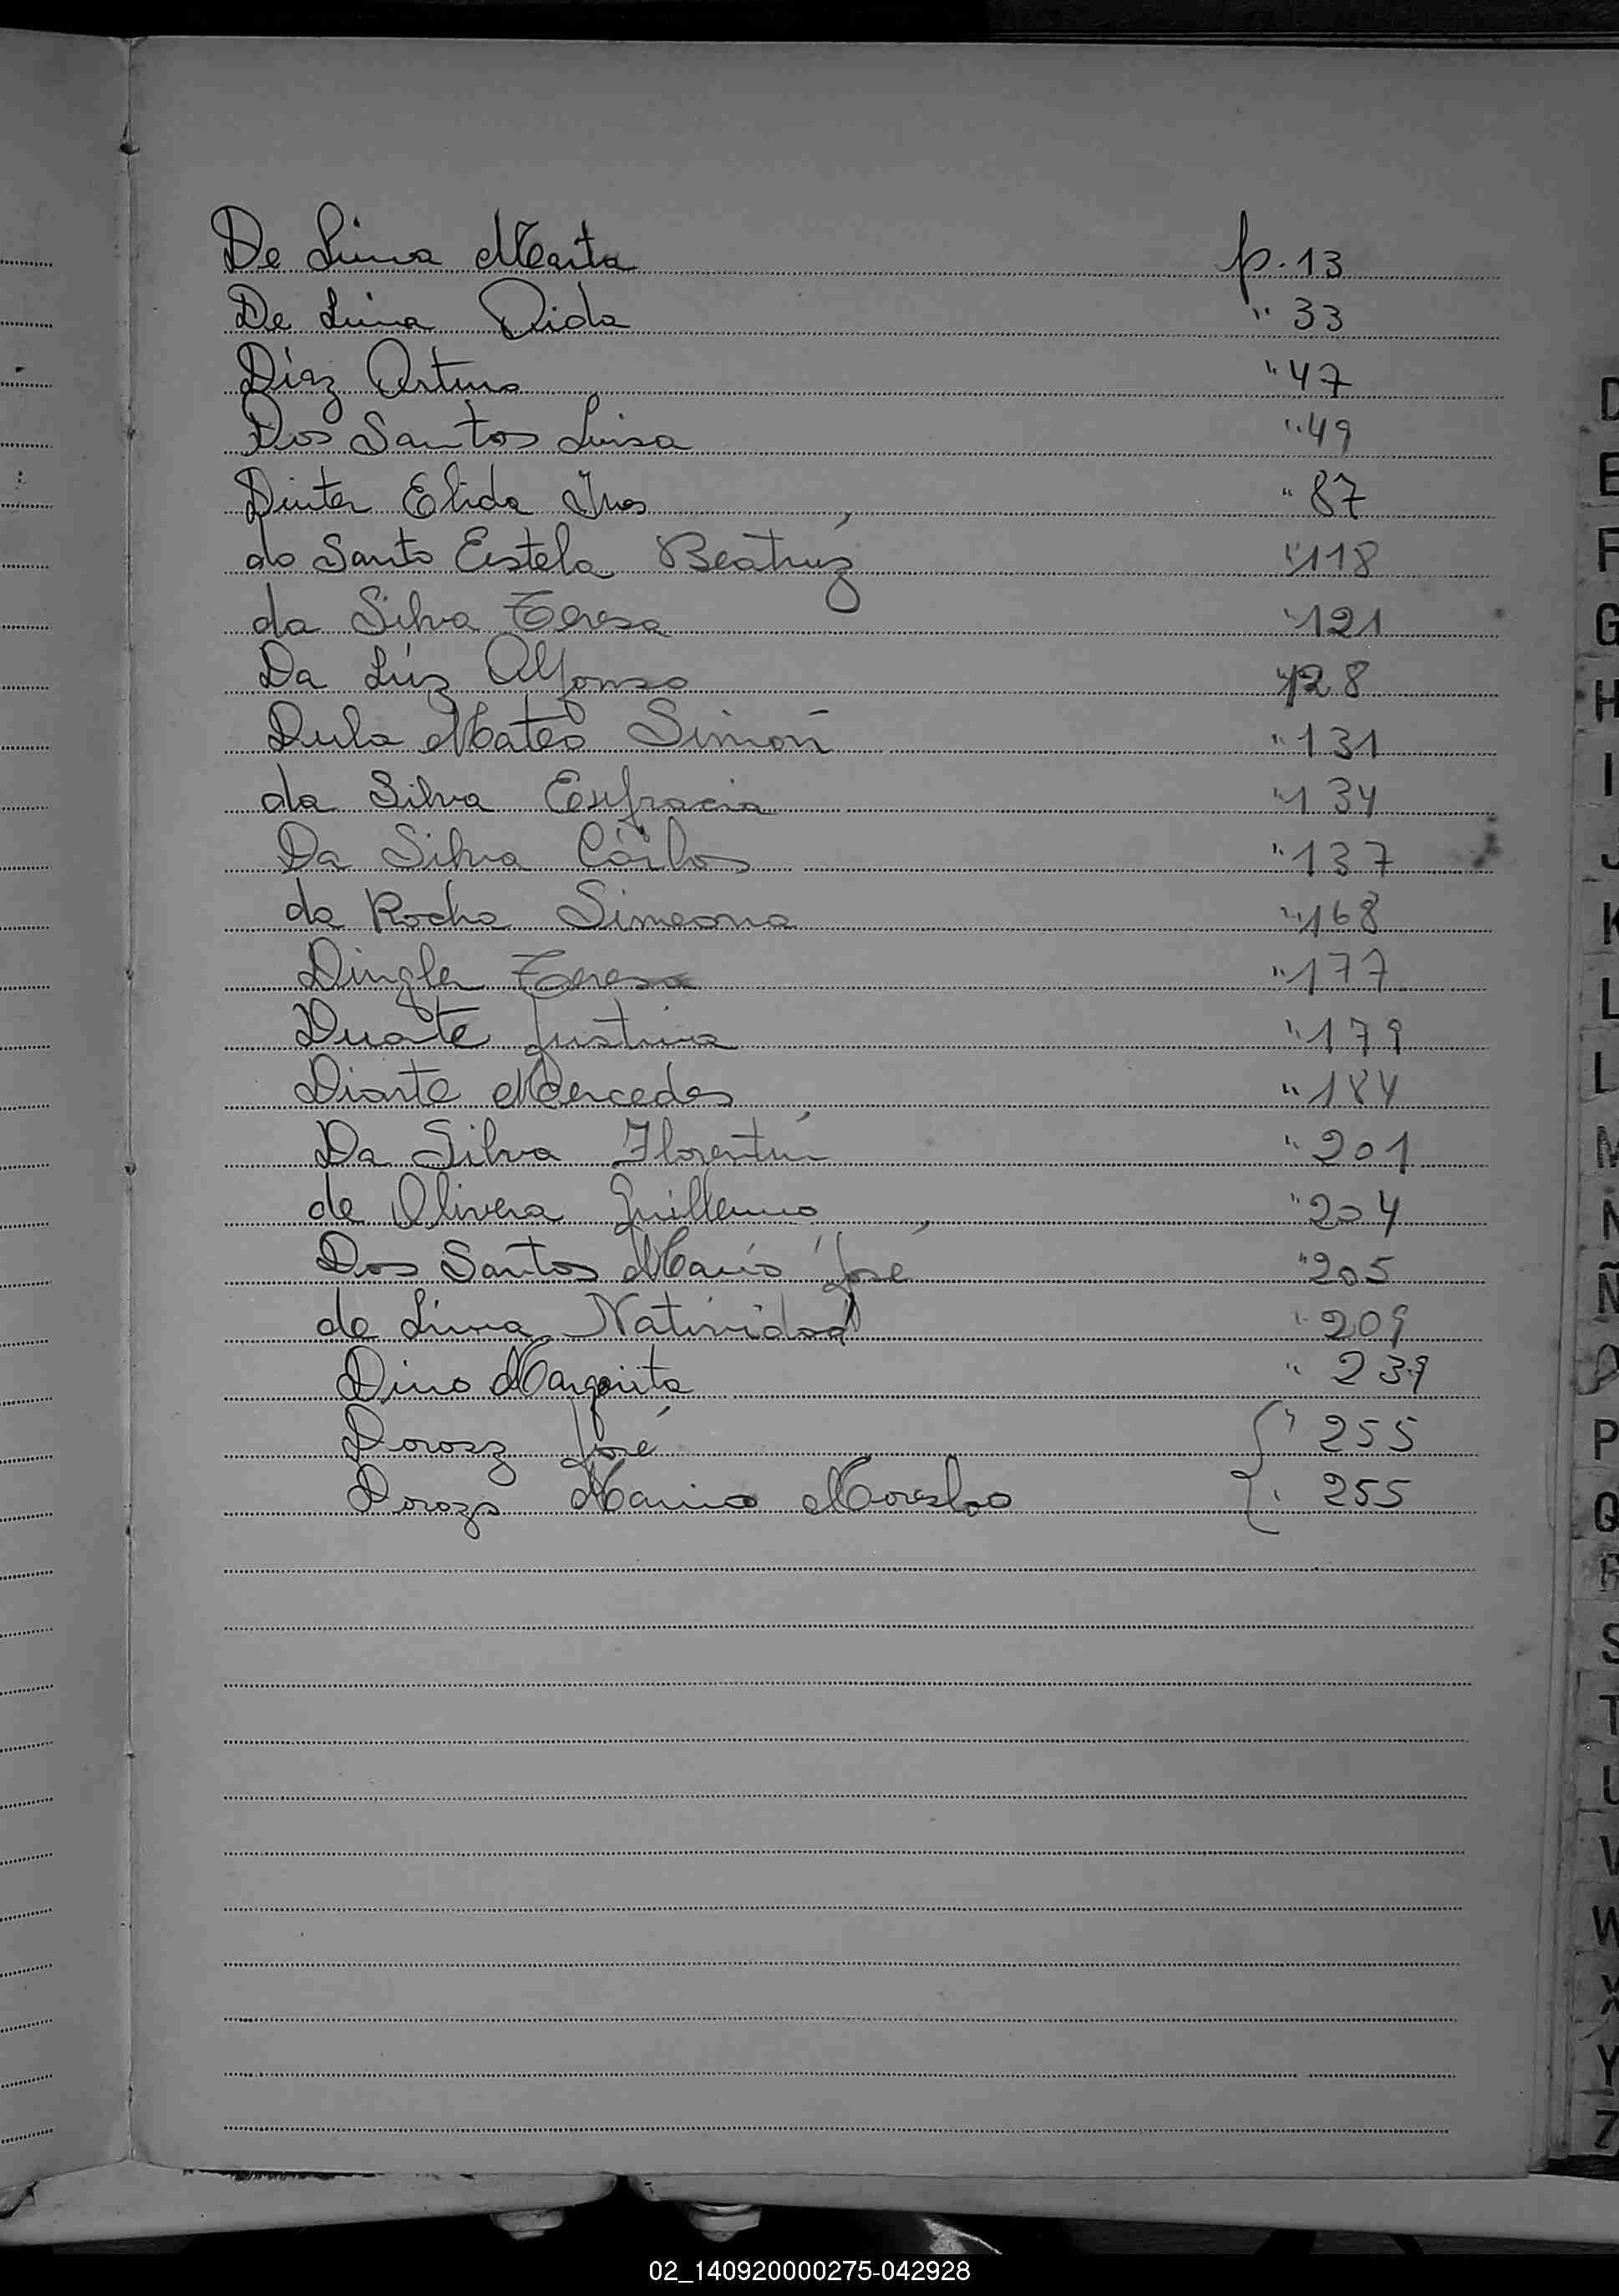 De Lima Marta p. 13
De Lima Dida " 33
Díaz Arturo " 47
Dos Santos Luisa " 49
Dinter Elida Ines " 87
do Santo Estela Beatríz " 118
da Silva Teresa " 121
Da Lúz Alfonso " 128
Dula Mateo Simón " 131
da Silva Eufracia " 134
Da Silva Cárlos " 137
da Rocha Simeona " 168
Dingler Teresa " 177
Duarte Justina " 179
Diarte Mercedes " 184
Da Silva Florentín " 201
de Olivera Guillermo " 204
Dos Santos María José " 205
de Lima Natividad " 209
Dino Margarita " 239
Dorosz José " 255
Dorozs Marina " 255
D
E
F
G
H
I
J
K
L
L
M
N
Ñ
O
P
Q
R
S
T
U
V
W
X
Y
Z
02_140920000275-042928